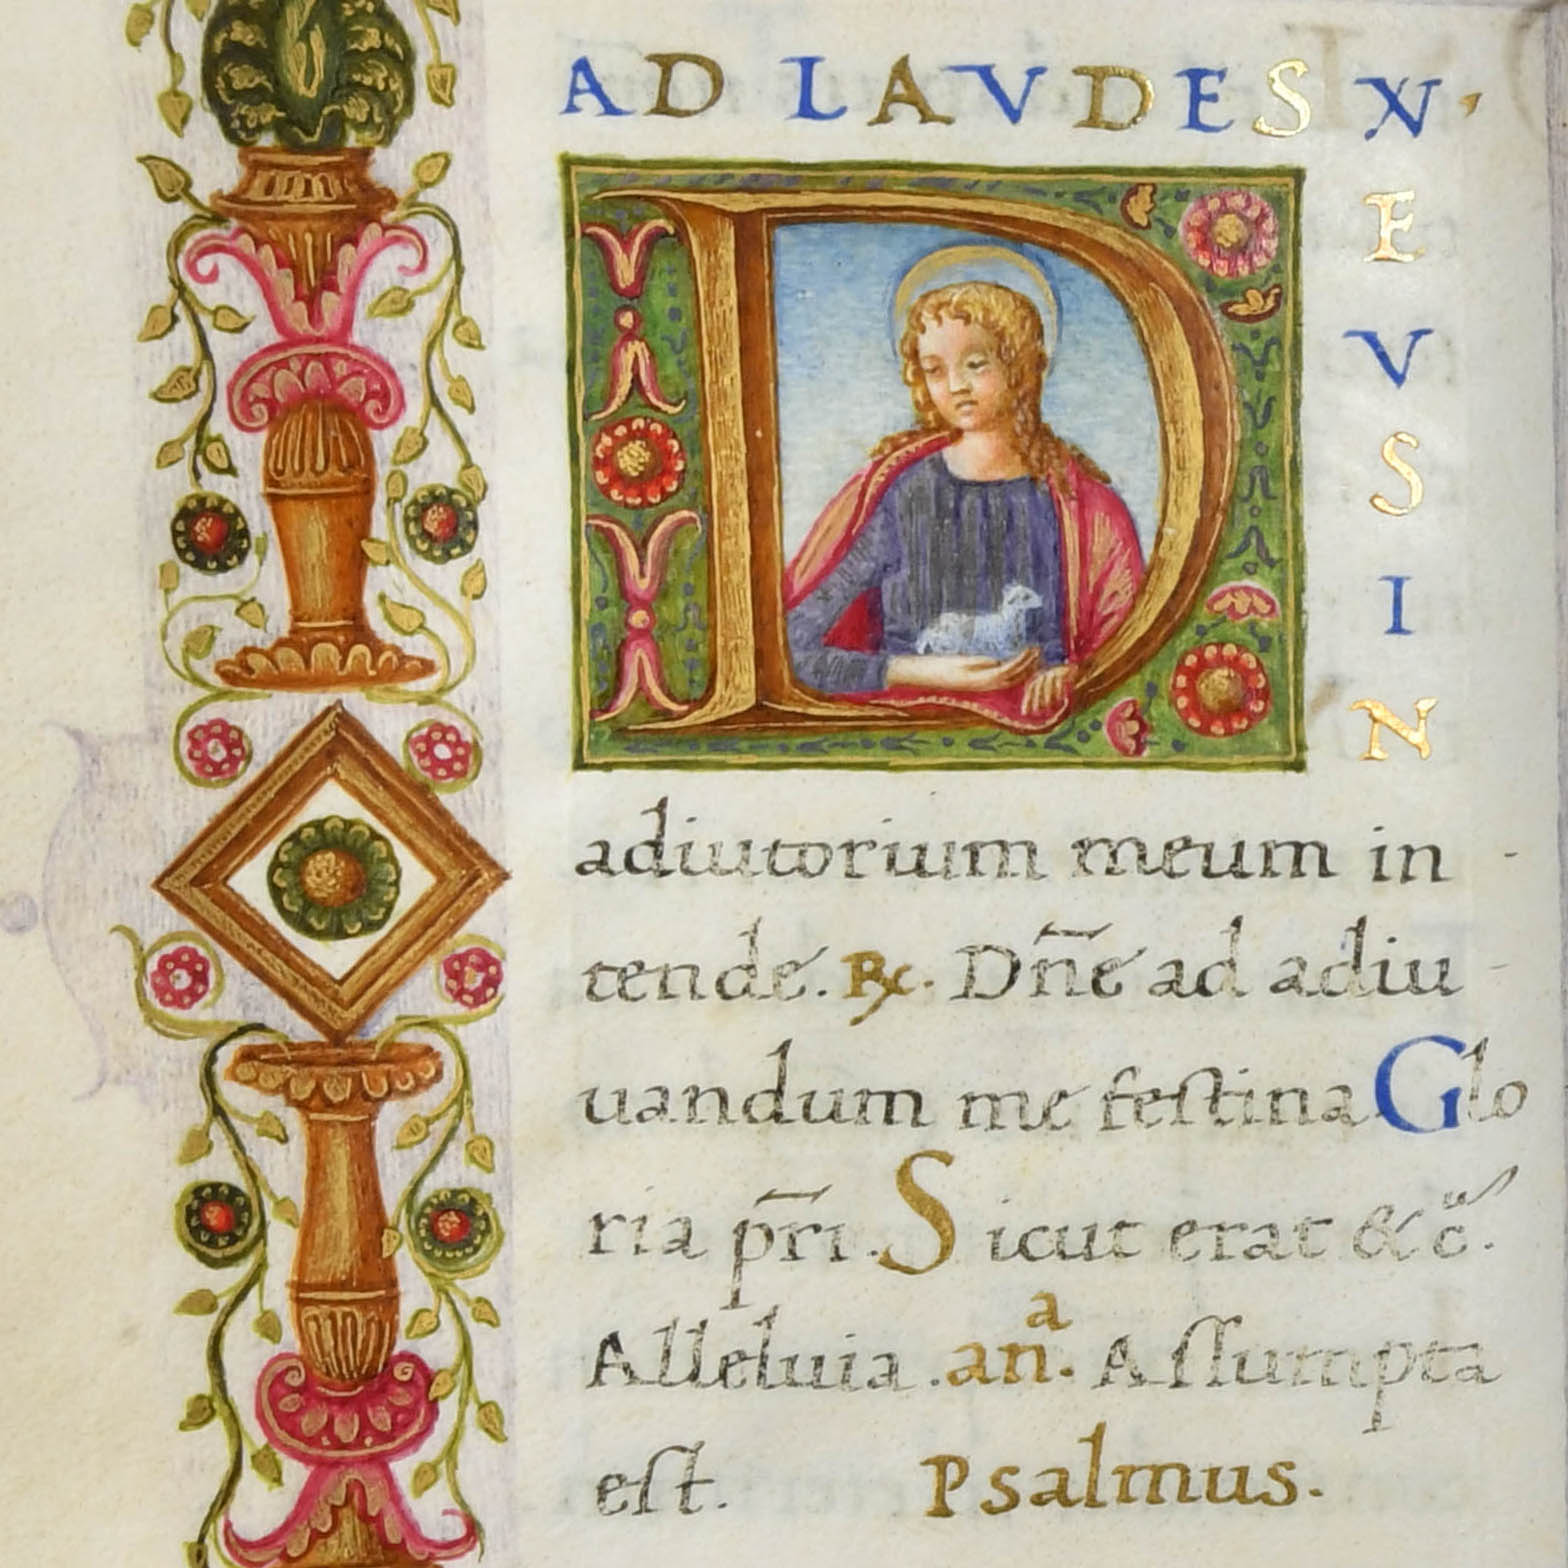 AD LAVDES X·
D
E
V
S
I
N
adiutorium meum in
tende. ℞. Dn̄e ad adiu
uandum me feſtina Glo
ria pr̄i. Sicut erat & c̃.
Alleluia. an̄ᵃ. Aſſumpta
eſt. Psalmus.